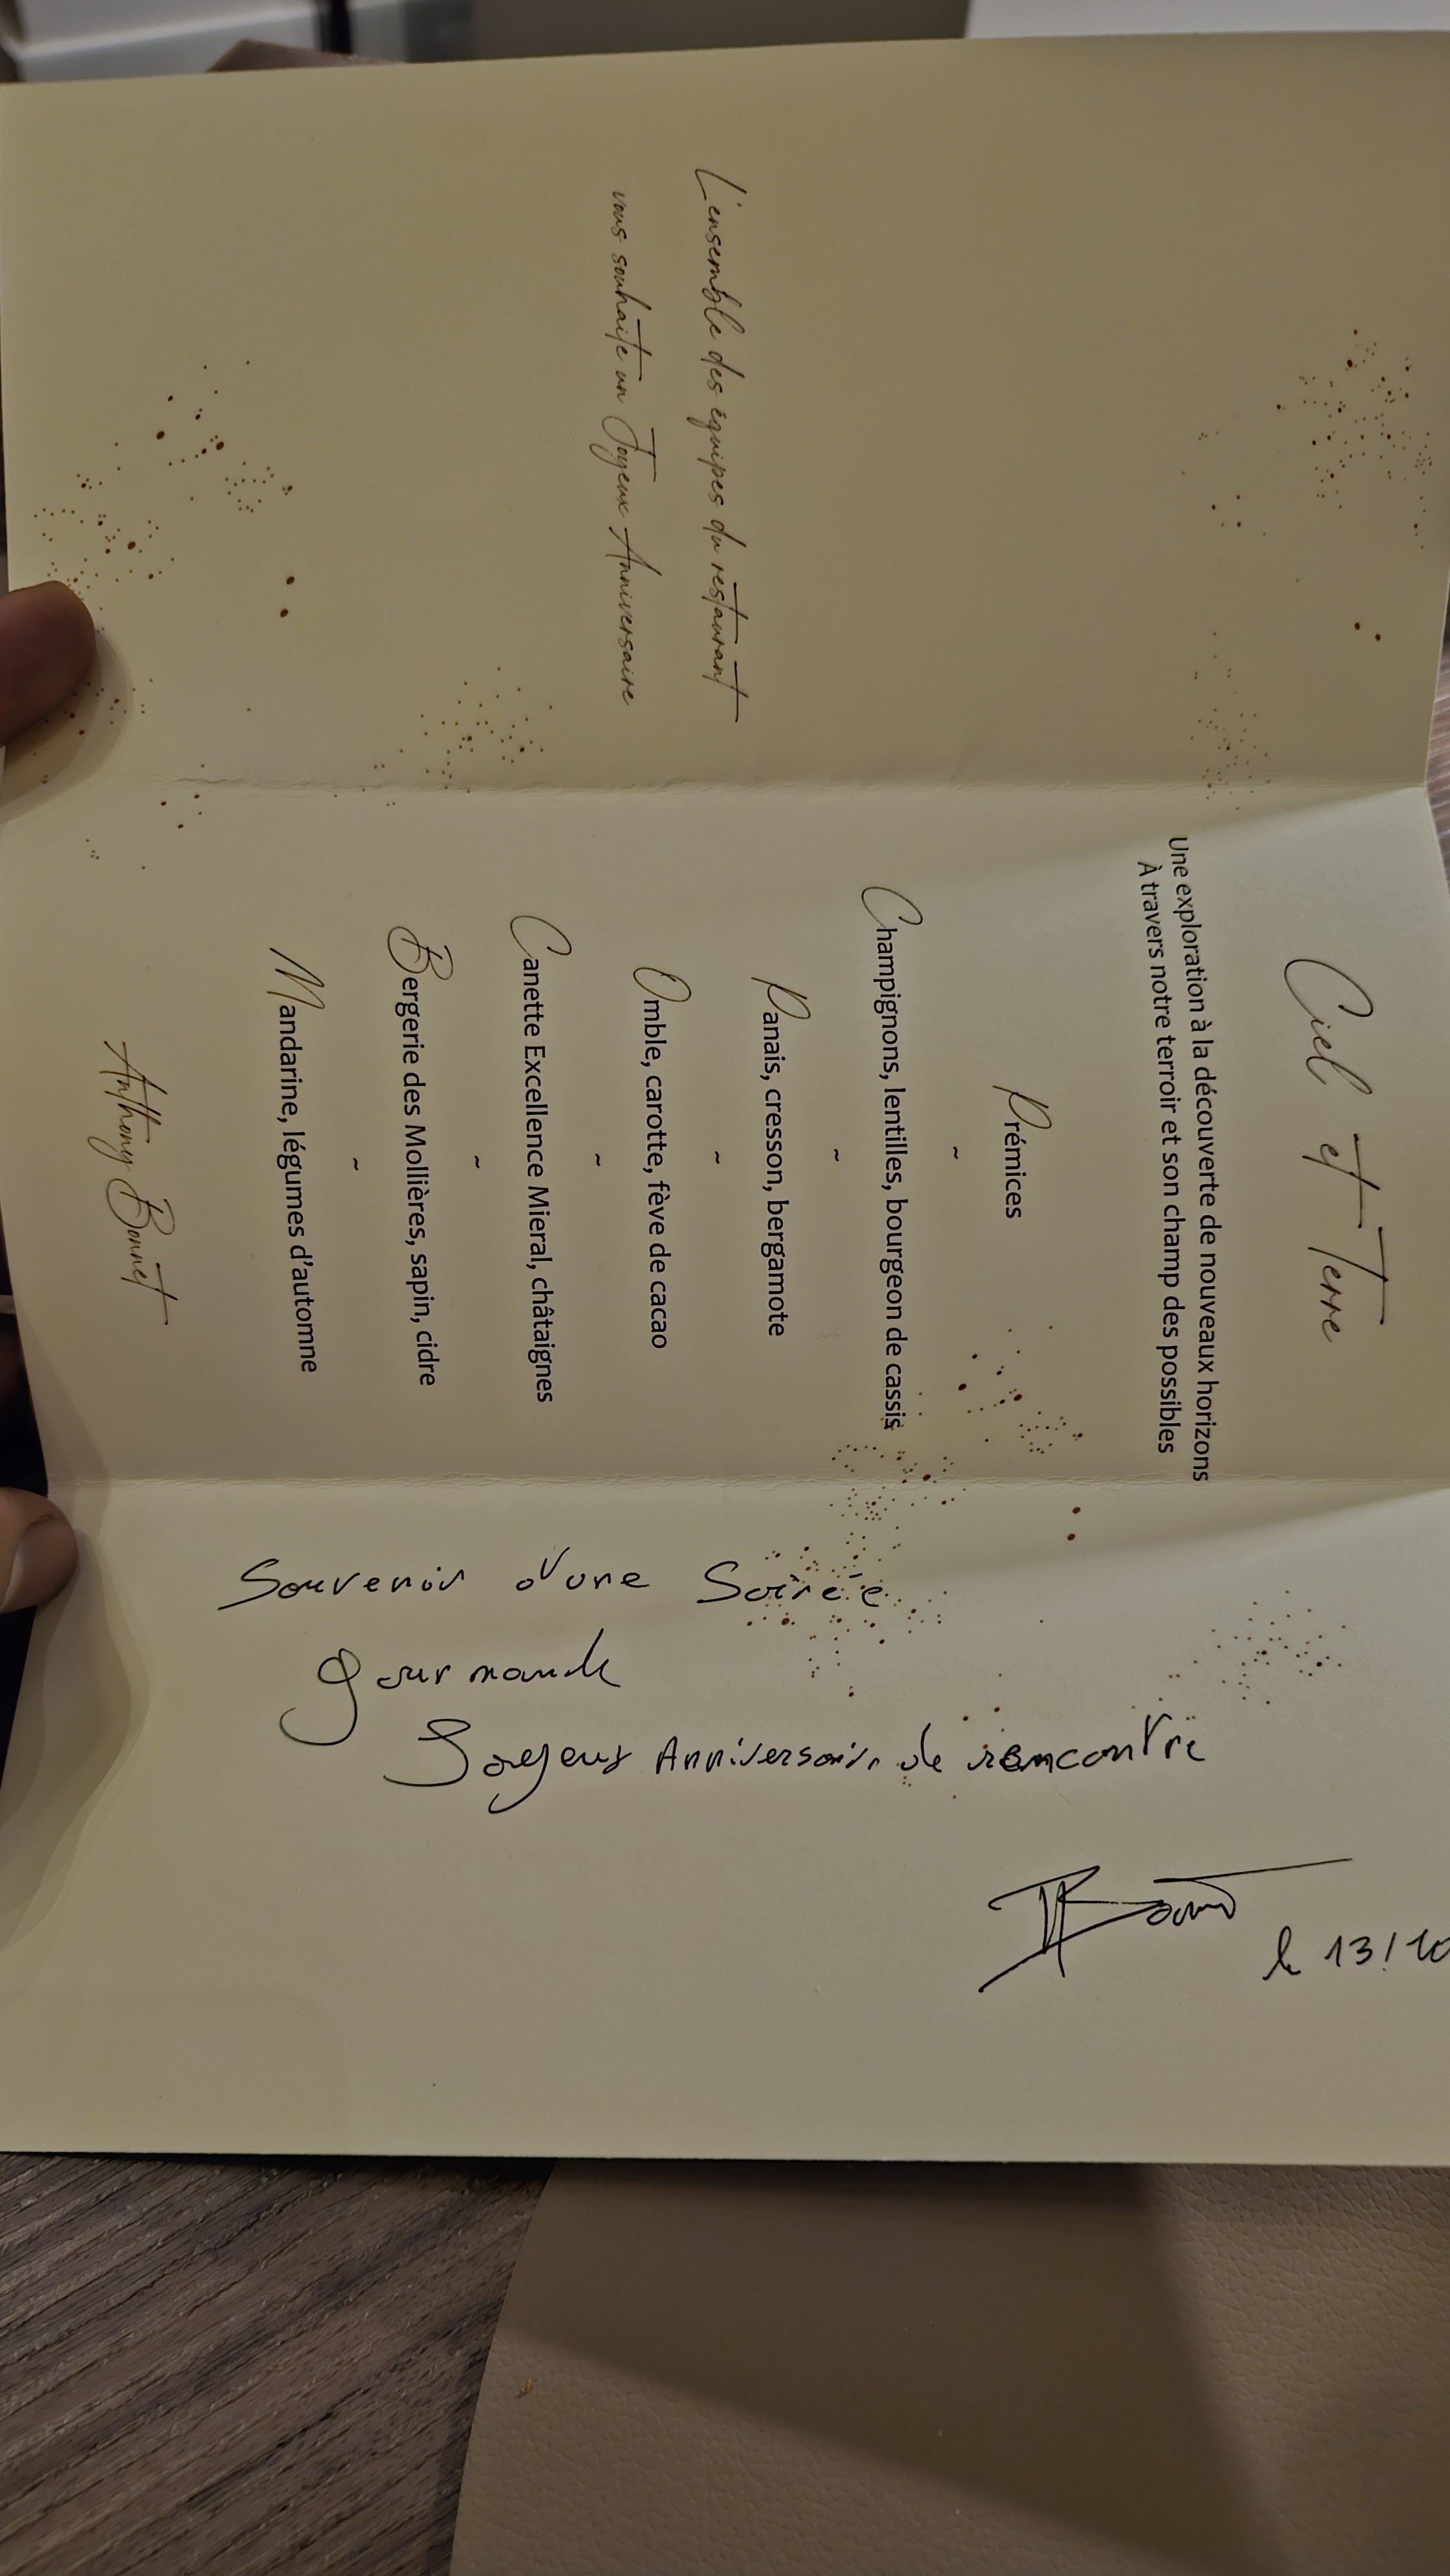 L'ensemble des équipes du restaurant
vous souhaite un Joyeux Anniversaire
Ciel et Terre
Une exploration à la découverte de nouveaux horizons
À travers notre terroir et son champ des possibles
Prémices
~
Champignons, lentilles, bourgeon de cassis
~
Panais, cresson, bergamote
~
Omble, carotte, fève de cacao
~
Canette Excellence Mieral, châtaignes
~
Bergerie des Mollières, sapin, cidre
~
Mandarine, légumes d'automne
Anthony Bonnet
Souvenir d'une Soirée
gourmande
Joyeux Anniversaire de rencontre
le 13/10